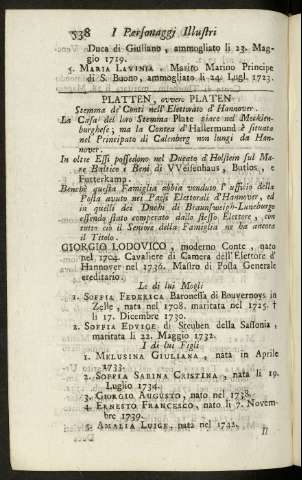 338 I Personaggi Illustri
Duca di Giuliano, ammogliato li 23. Mag-
gio 1719.
5. MARIA LAVINIA. Marito Marino Principe
di S. Buono, ammogliato li 24. Lugl. 1723.
PLATTEN, ovvero PLATEN
Stemma de' Conti nell' Elettorato d'Hannover.
La Casa del loro Stemma Plate giace nel Mecklen-
burghese; ma la Contea d'Hallermund è situata
nel Principato di Calenberg non lungi da Han-
nover.
In oltre Essi possedono nel Ducato d'Holstein sul Ma-
re Baltico i Beni di VVeisenhaus, Butlos, e
Futterkamp.
Benchè questa Famiglia abbia venduto l'ufficio della
Posta avuto nei Paesi Elettorali d'Hannover, ed
in quelli dei Duchi di Braunsuveich-Luneburgo
essendo stato comperato dallo stesso Elettore, con
tutto ciò il Seniore della Famiglia ne ha ancora
il Titolo.
GIORGIO LODOVICO, moderno Conte, nato
nel 1704. Cavaliere di Camera dell'Elettore d'
Hannover nel 1736. Mastro di Posta Generale
ereditario.
Le di lui Mogli
1. SOFFIA FEDERICA Baronessa di Bouvernoys in
Zelle, nata nel 1708. maritata nel 1725. †
li 17. Dicembre 1730.
2. SOFFIA EDVIGE di Steuben della Sassonia,
maritata li 22. Maggio 1732.
I di lui Figli
1. MELUSINA GIULIANA, nata in Aprile
1733.
2. SOFFIA SABINA CRISTINA, nata li 19.
Luglio 1734.
3. GIORGIO AUGUSTO, nato nel 1738.
4. ERNESTO FRANCESCO, nato li 7. Novem-
bre 1739.
5. AMALIA LUIGE, nata nel 1742.
Il